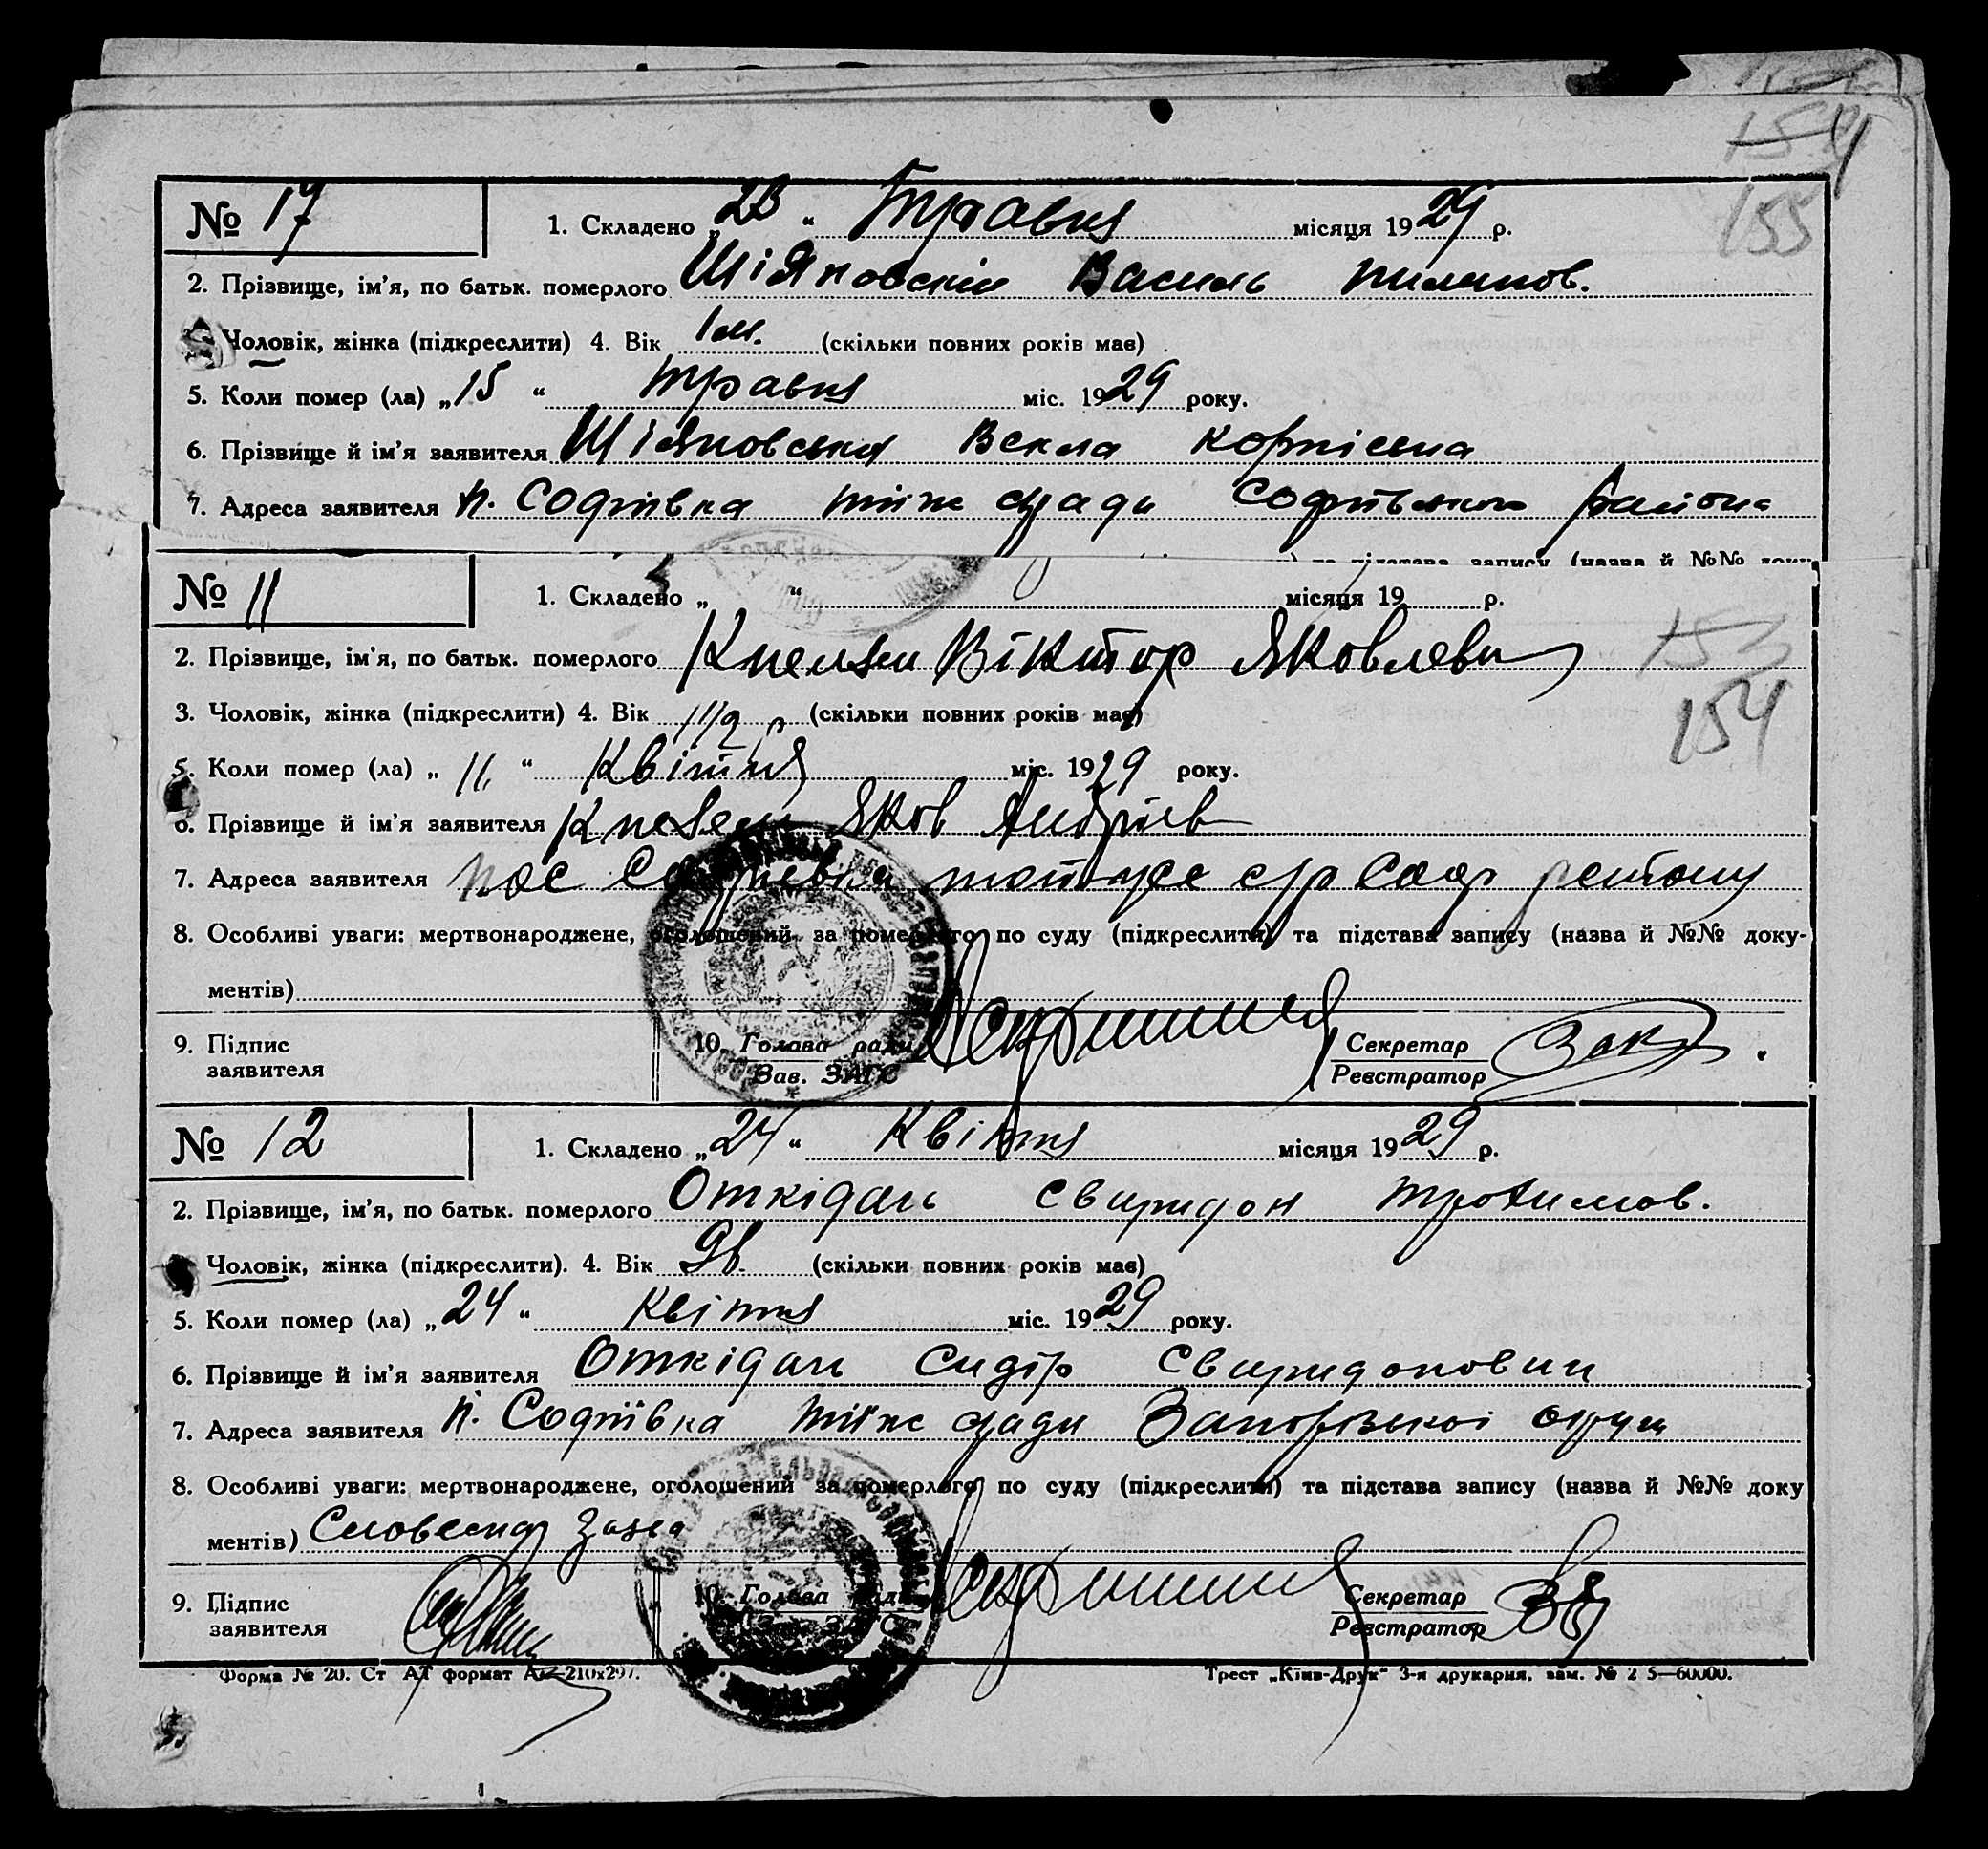 154
155
№ 17
1. Складено „23“ Травня місяця 1929 р.
2. Прізвище, ім'я, по батьк. померлого Шіяновскій Василь Пилипов.
Чоловік, жінка (підкреслити) 4. Вік 1 м. (скільки повних років має)
5. Коли помер (ла) „15“ Травня міс. 1929 року.
6. Прізвище й ім'я заявителя Шіяновська Векла Корніевна
7. Адреса заявителя п. Софіївка тіїж с/ради Софіївського району
запису (назва й №№ доку
№ 11
1. Складено „ “ місяця 19 р.
2. Прізвище, ім'я, по батьк. померлого Віктор Яковлеви
3. Чоловік, жінка (підкреслити) 4. Вік 1 1/2 р (скільки повних років має)
153
154
5. Коли помер (ла) „11“ Квітня міс. 1929 року.
6. Прізвище й ім'я заявителя Яков Андріїв
7. Адреса заявителя пос Софиевка тойже с/р Соф
8. Особливі уваги: мертвонароджене, оголошений за померлого по суду (підкреслити) та підстава запису (назва й №№ доку-
ментів)
9. Підпис заявителя
10. Голова ради
Зав. ЗАГС
Секретар
Реєстратор
№ 12
1. Складено „24“ Квітня місяця 1929 р.
2. Прізвище, ім'я, по батьк. померлого Откідач Свиридон Трохимов.
Чоловік, жінка (підкреслити). 4. Вік (скільки повних років має)
5. Коли помер (ла) „24“ Квітня міс. 1929 року.
6. Прізвище й ім'я заявителя Откідач Сидір Свиридонович
7. Адреса заявителя п. Софіївка тіїж с/ради Запорізької округи
8. Особливі уваги: мертвонароджене, оголошений за померлого по суду (підкреслити) та підстава запису (назва й №№ доку
ментів) Словесна заява
9. Підпис заявителя
10. Голова ради
Зав. ЗАГС
Секретар
Реєстратор
Форма № 20. Ст АТ формат А₄—210x297.
Трест „Київ-Друк“ 3-я друкарня, зам. № 2 5—60000.